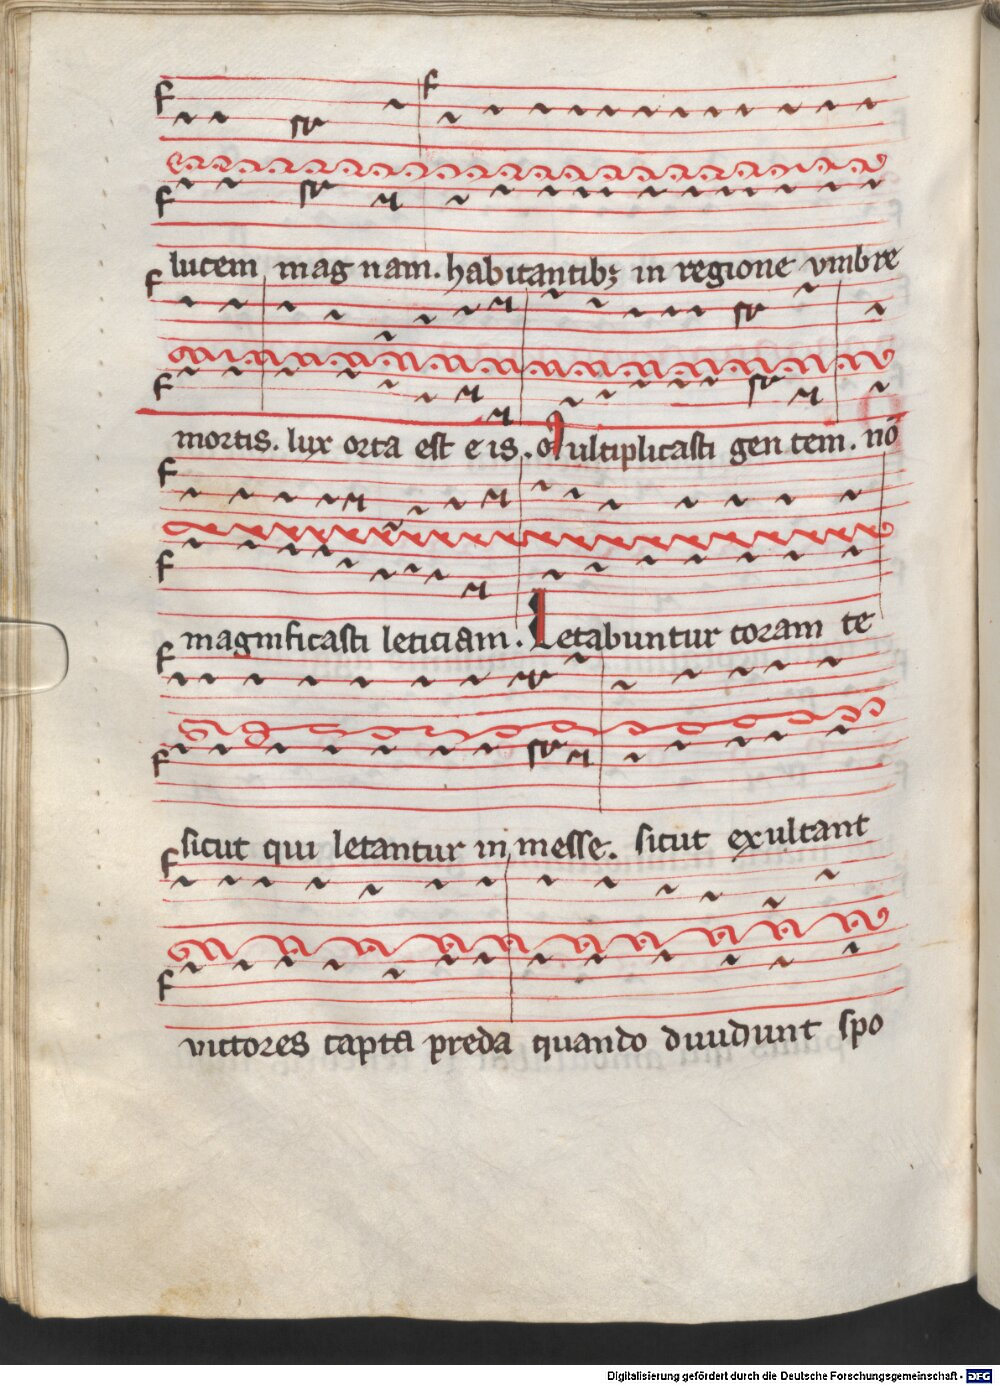 lucem magnam. habitantibꝫ in regione vmbre
mortis. lux orta est eis. Multiplicasti gentem. nō
magnificasti leticiam. Letabuntur coram te
sicut qui letantur in messe. sicut exultant
victores capta preda quando diuidunt spo
Digitalisierung gefördert durch die Deutsche Forschungsgemeinschaft - DFG